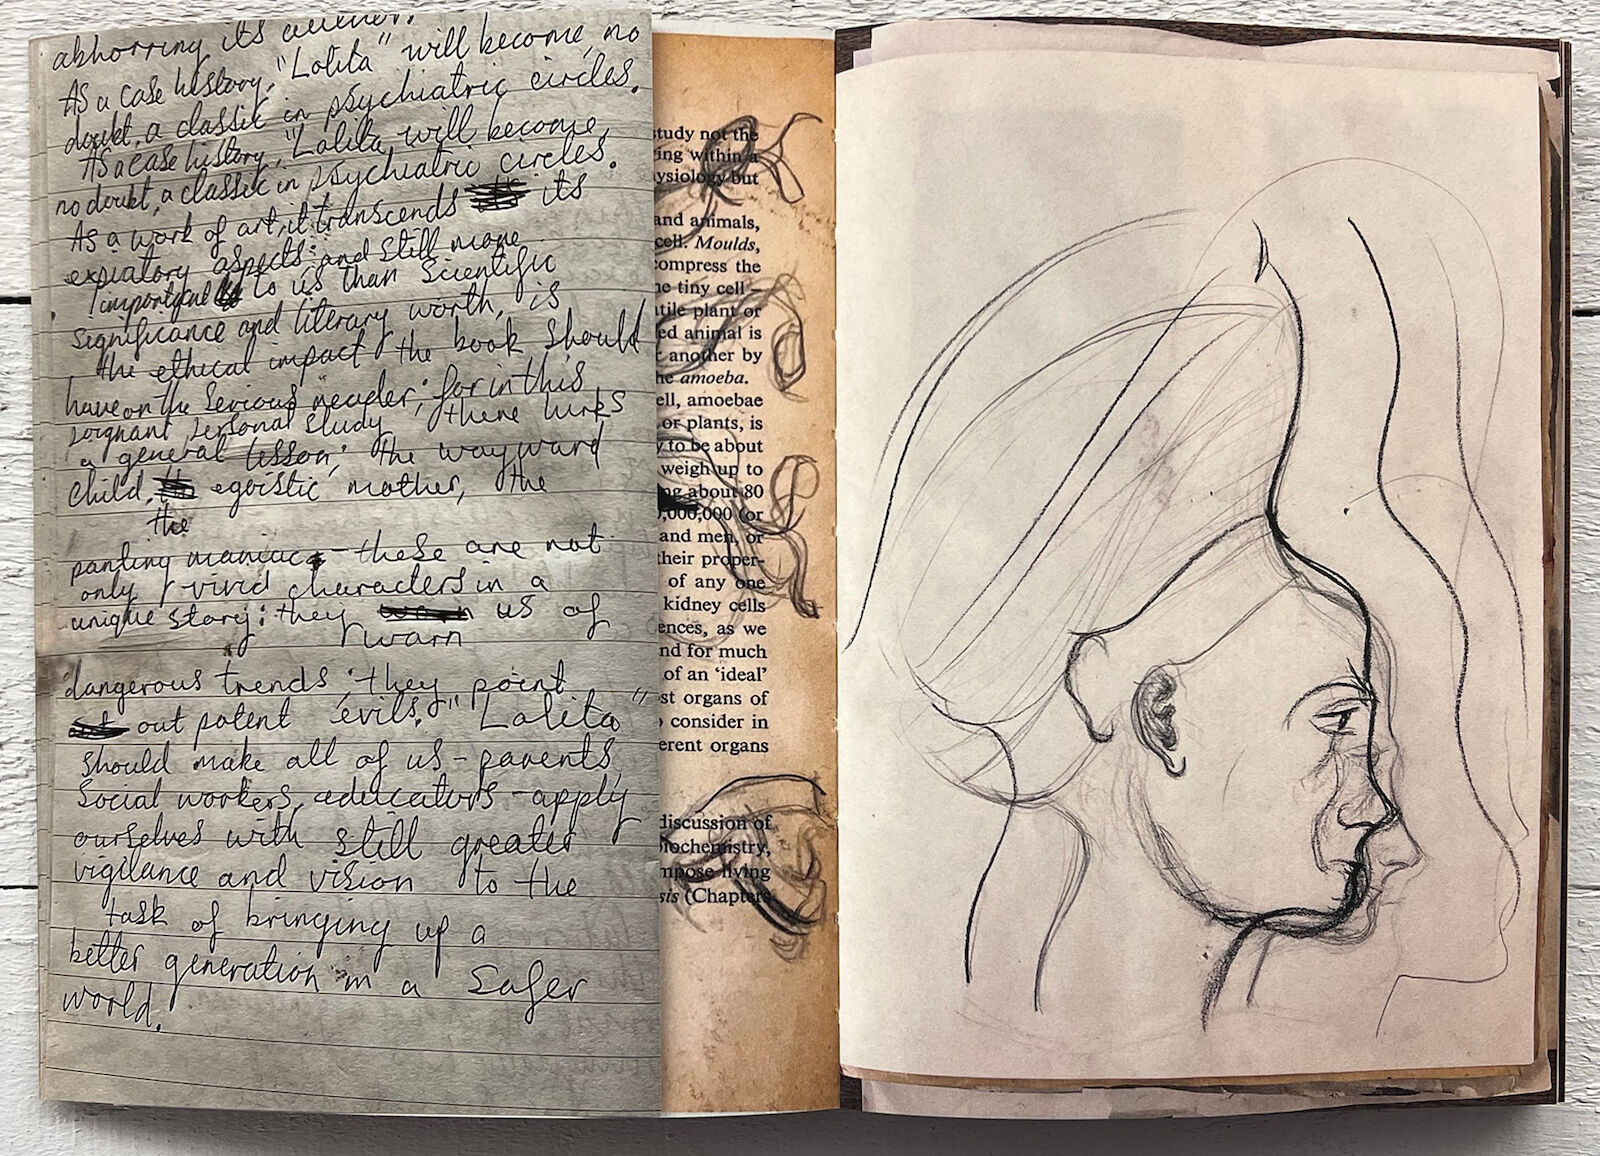 abhorring its author.
As a case history, "Lolita" will become, no
doubt, a classic in psychiatric circles.
As a case history, "Lolita, will become,
no doubt, a classic in psychiatric circles.
As a work of art, it transcends its
expiatory aspects: and still more
important to us than scientific
significance and literary worth, is
the ethical impact the book should
have on the serious reader; for in this
poignant personal study there lurks
a general lesson; the wayward
child, egoistic mother, the
the
panting maniac - these are not
only vivid characters in a
unique story: they us of
warn
dangerous trends; they point
out potent evils. "Lolita"
should make all of us - parents
Social workers, educators - apply
ourselves with still greater
vigilance and vision to the
task of bringing up a
better generation in a safer
world.
study not the
ing within a
ysiology but
and animals,
cell. Moulds,
compress the
e tiny cell –
tile plant or
ed animal is
another by
e amoeba.
ell, amoebae
or plants, is
y to be about
weigh up to
ng about 80
0,000,000 (or
and men, or
their proper-
of any one
kidney cells
ences, as we
nd for much
of an ‘ideal’
st organs of
consider in
erent organs
discussion of
iochemistry,
mpose living
sis (Chapters